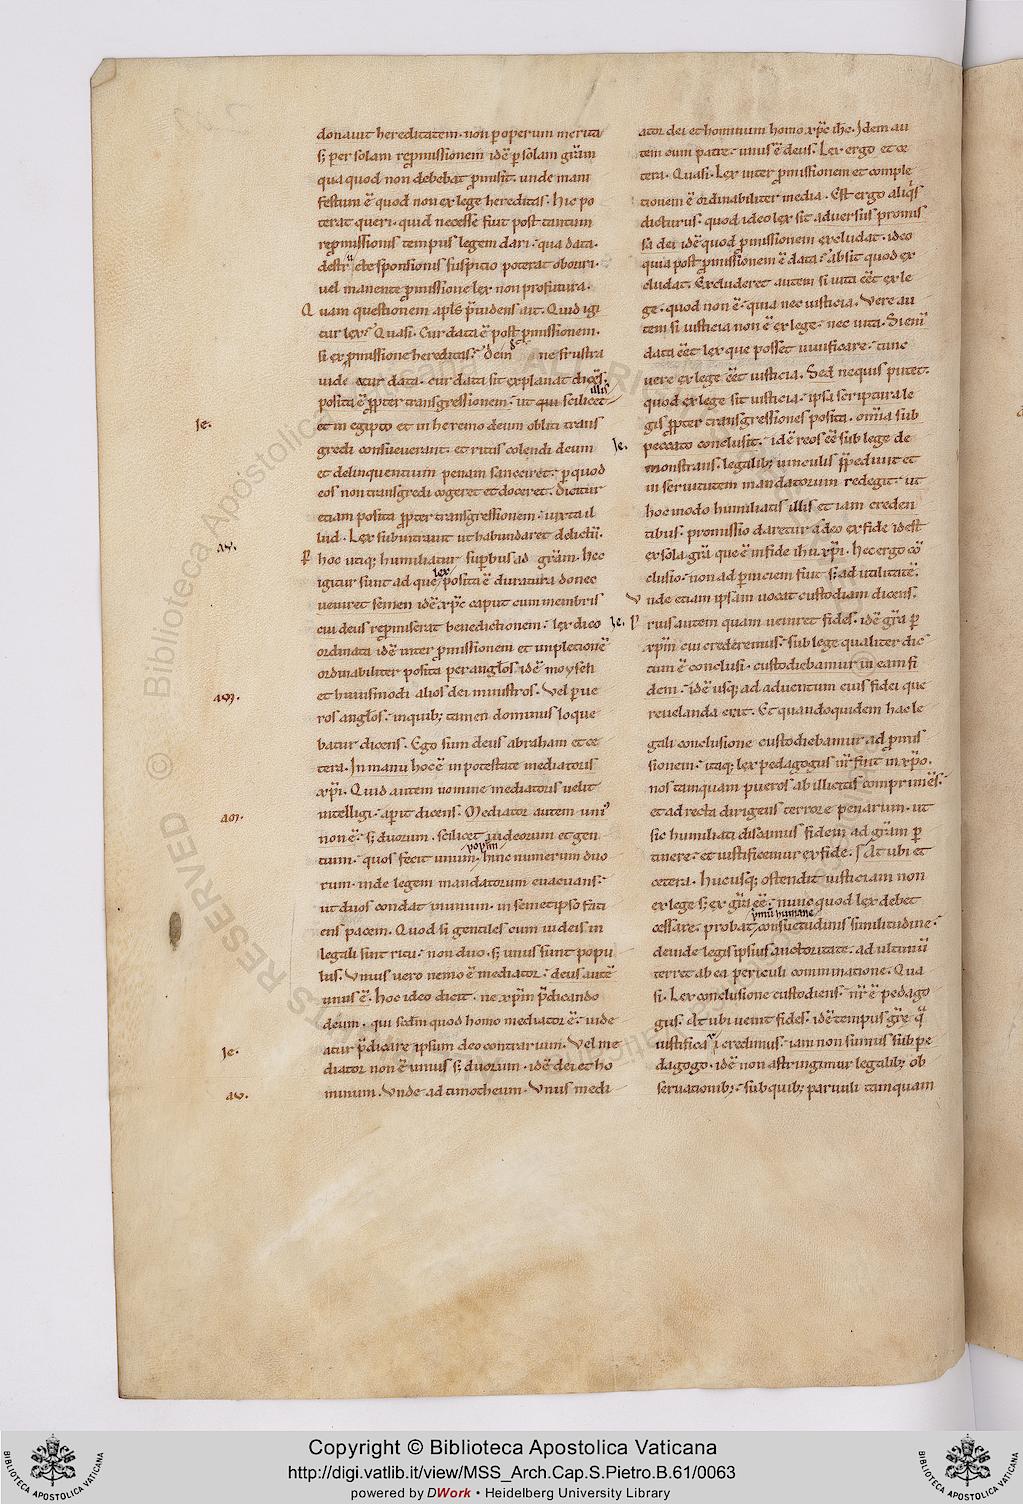 donauit hereditatem. non p operum merita
s; per solam rep̱missionem idē p̱ solam gr̄am
qua quod non debebat p̱misit. unde mani
festum ē quod non ex lege hereditas. hic po
terat queri. quid necesse fuit post tantum
rep̱missionis tempus legem dari. qua data.
destructe sponsionis suspicio poterat oboriri.
uel manente p̱missione lex non profutura.
Quam questionem apl̄s p̱uidens ait. Quid igi
tur lex? Quasi. Cur data ē post p̱missionem.
si ex p̱missione hereditas? Dein ne frustra
uideatur data. cur data sit explanat dicēs.
posita ē p̱pter transgressionem. ut qui scilicet illis
et in egipto et in heremo deum obliti trans
gredi consueuerant. et ritus colendi deum
et delinquentium penam sanciret. p̱ quod
eos non transgredi cogeret et doceret. Dicitur
etiam posita p̱pter transgressionem. iuxta il
lud. Lex subintrauit ut habundaret delictū.
P hoc utiq; humiliatur sup̱bus ad gr̄am. hec
igitur sunt ad que lex posita ē duratura donec
ueniret semen idē xp̄c caput cum membris
cui deus rep̱miserat benedictionem. lex dico
ordinata idē inter p̱missionem et impletionē
ordinabiliter posita per angl̄os. idē moysen
et huiusmodi alios dei ministros. Vel p̱ ue
ros angl̄os. in quib; tamen dominus loque
batur dicens. Ego sum deus abraham et ce
tera. In manu hoc ē in potestate mediatoris
xp̄i. Quid autem nomine mediatoris uelit
intelligi. aperit dicens. Mediator autem uni'
non ē. s; duorum. scilicet iudeorum et gen
tium. quos fecit unum pop̄lm. hinc numerum duo
rum. inde legem mandatorum euacuans.
ut duos condat in unum. in semetipso faci
ens pacem. Quod si gentiles cum iudeis in
legali sunt ritu. non duo. s; unus sunt popu
lus. Vnius uero nemo ē mediator. deus autē
unus ē. hoc ideo dicit. ne xp̄m p̄dicando
deum. qui scdm quod homo mediator ē. uide
atur p̄dicare ipsum deo contrarium. Vel me
diator non ē unius s; duorum. idē dei et ho
minum. Vnde ad timotheum. Vnus medi
Ie.
av.
am.
am.
Ie.
av.
ator dei et hominum homo xp̄c ih̄c. Idem au
tem cum patre. unus ē deus. Lex ergo et ce
tera. Quasi. Lex inter p̱missionem et comple
tionem ē ordinabiliter media. Est ergo aliq̄s
dicturus. quod ideo lex sit aduersus promis
sa dei idē quod p̱missionem excludat. ideo
quia post p̱missionem ē data? absit quod ex
cludat. Excluderet autem si uita eēt ex le
ge. quod non ē. quia nec iusticia. Vere au
tem si iusticia non ē ex lege. nec uita. Si enī
data eēt lex que posset uiuificare. tunc
uere ex lege eēt iusticia. Sed ne quis putet.
quod ex lege sit iusticia. ipsa scriptura le
gis p̱pter transgressiones posita. om̄ia sub
peccato conclusit. idē reos eē sub lege de
monstrans. legalib; uinculis p̱pediuit et
in seruitutem mandatorum redegit. ut
hoc modo humiliatis illis et iam creden
tibus. promissio daretur adeo ex fide id est
ex sola gr̄a que ē in fide ih̄u xp̄i. Hec ergo cō
clusio. non ad p̱niciem fuit s; ad utilitatē.
Vnde etiam ipsam uocat custodiam dicens.
Prius autem quam ueniret fides. idē gr̄a p̱
xp̄m cui crederemus. sub lege qualiter dic
tum ē conclusi. custodiebamur in eam fi
dem. idē usq; ad aduentum eius fidei que
reuelanda erat. Et quandoquidem hac le
gali conclusione custodiebamur. ad p̱mis
sionem. itaq; lex pedagogus nr̄ fuit in xp̄o.
nos tamquam pueros ab illicitis comprimēs.
et ad recta dirigens terrore penarum. ut
sic humiliati discamus fidem ad gr̄am p̱
tinere. et iustificemur ex fide. At ubi et
cetera. Hucusq; ostendit iusticiam non
ex lege s; ex gr̄a eē. nunc quod lex debet
cessare. probat p̱mū humane consuetudinis similitudine.
deinde legis ipsius auctoritate. ad ultimū
terret ab ea periculi comminatione. Qua
si. Lex conclusione custodiens. nr̄ ē pedago
gus. At ubi uenit fides. idē tempus gr̄e q̄
iustificari credimus. iam non sumus sub pe
dagogo. idē non astringimur legalib; ob
seruationib;. sub quib; paruuli tamquam
Ie.
Ie.
Copyright © Biblioteca Apostolica Vaticana
http://digi.vatlib.it/view/MSS_Arch.Cap.S.Pietro.B.61/0063
powered by DWork • Heidelberg University Library
BIBLIOTECA APOSTOLICA VATICANA
BIBLIOTECA APOSTOLICA VATICANA